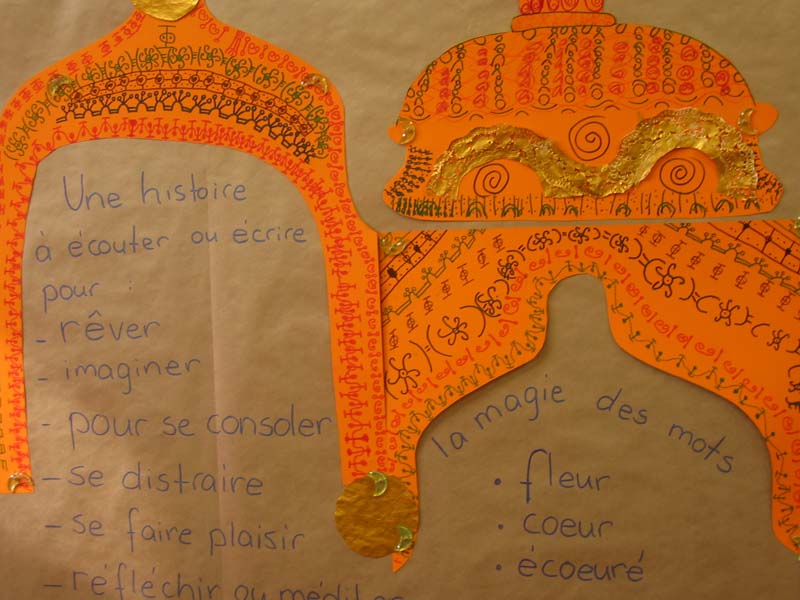 Une histoire
à écouter ou écrire
pour :
- rêver
- imaginer
- pour se consoler
- se distraire
- se faire plaisir
- réfléchir ou méditer
la magie des mots
• fleur
• coeur
• écoeuré